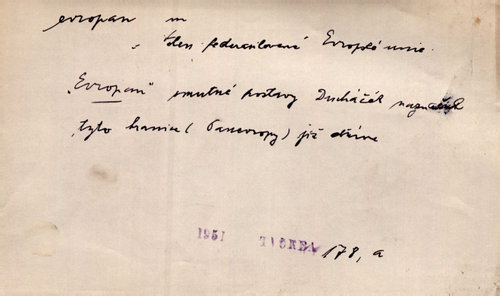 evropan m
„ člen federalisované Evropské unie.
„Evropan" smutné postavy Ducháček naznačil
tyto hranice (Panevropy) již dříve
1951 178, a